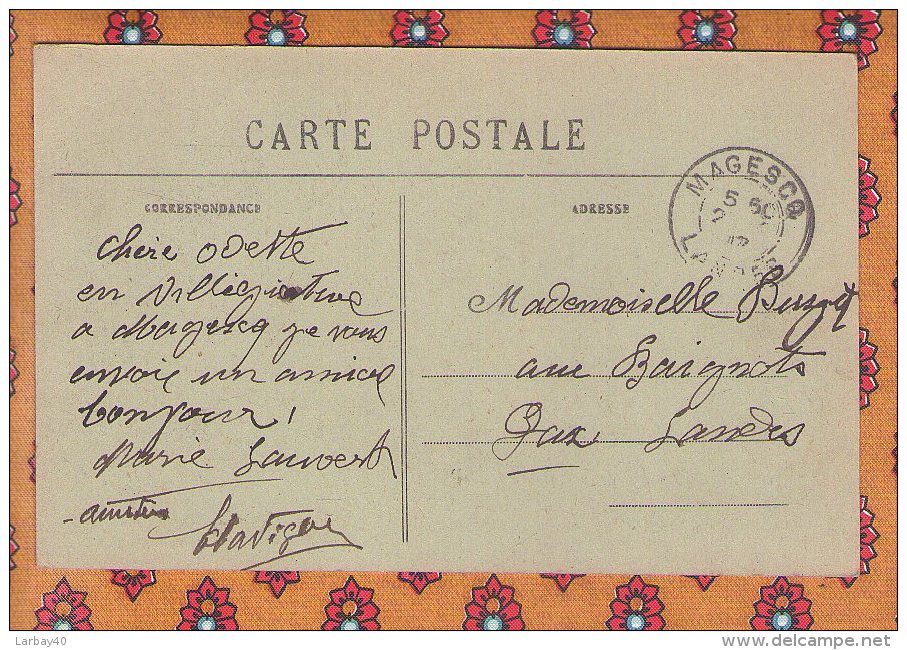 CARTE POSTALE
CORRESPONDANCE
chère Odette
en villegiature
a Magescq je vous
envoie un amical
bonjour !
Marie
ADRESSE
MAGESCQ
5
LANDES
Mademoiselle
aux Baignots
Dax Landes
Larbay40
www.delcampe.net